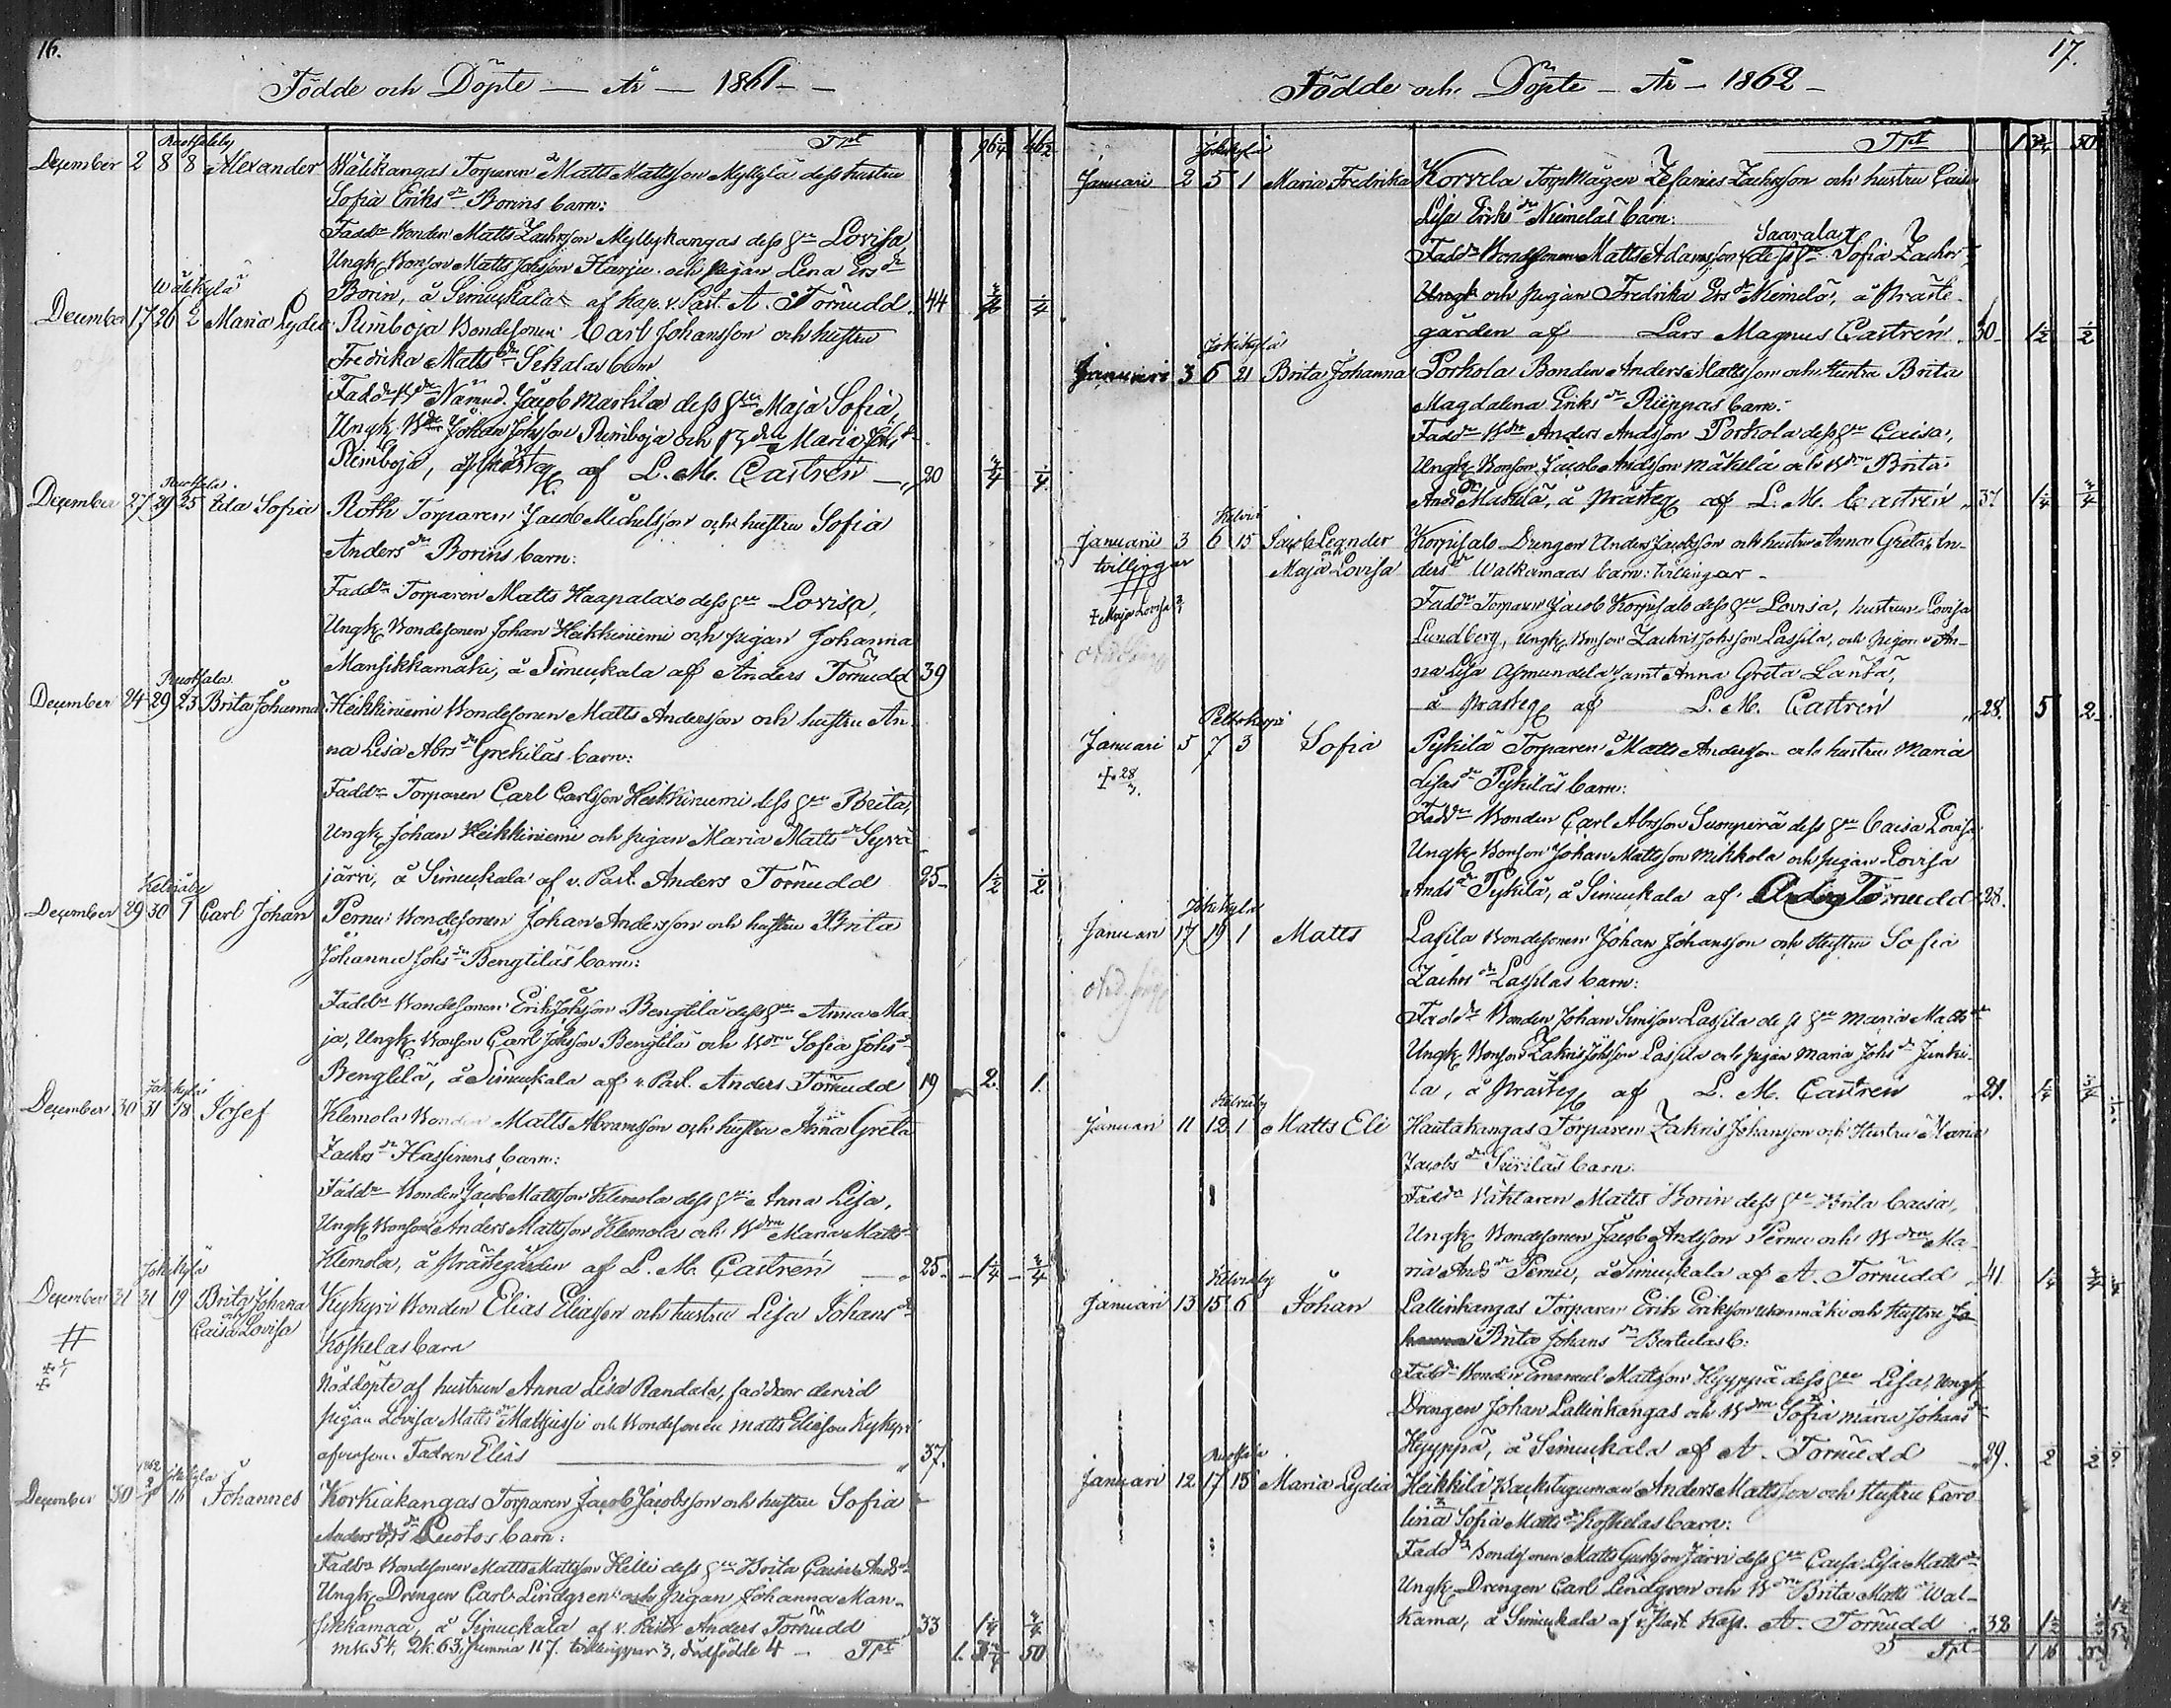 16.
Födde och Döpte — År — 1861 —
Tpt 96¼ 46½
Ruotsaloby
December 2 8 8 Alexander Wälikangas Torparen Matts Mattsson Myllylä dess hustru
Sofia Eriks dr Borins barn:
Faddr Bonden Matts Zachrsson Myllykangas dess hu Lovisa,
Ungk. Bonson Matts Johsson Harju och pigan Lena Ers dr
Borin, å Simukala af Kap. v. Past. A. Törnudd 44
Wälikylä
December 17 26 2 Maria Lydia Rimboja Bondesonen Carl Johansson och hustru
Fredrika Matts dr Sikalas barn
Jacob Markila dess hu Maja Sofia,
Ungk. Johan Johsson Rimboja och Maria Johs dr
Rimboja, å prästg. af L. M. Castrén 20
Ruotsalo
December 27 29 25 Ida Sofia Roth Torparen Jacob Michelsson och hustru Sofia
Anders dr Borins barn:
Faddr Torparen Matts Haapalaxo dess hu Lovisa,
Ungk. Bondesonen Johan Heikkiniemi och pigan Johanna
Mansikkamäki, å Simukala af Anders Törnudd 39
Ruotsalo
December 24 29 23 Brita Johanna Heikkiniemi Bondesonen Matts Andersson och hustru An-
na Lisa Abrs dr Grekiläs barn:
Faddr Torparen Carl Carlsson Heikkiniemi dess hu Brita,
Ungk. Johan Heikkiniemi och pigan Maria Matts dr Syvä
järvi, å Simukala af v. Past. Anders Törnudd 25 1½ ½
Kelviåby
December 29 30 1 Carl Johan Pernu Bondesonen Johan Andersson och hustru Brita
Johanna Johs dr Bengtiläs barn:
Faddr Bondesonen Erik Johsson Bengtilä dess hu Anna Ma-
ja, Ungk. Bonson Carl Johsson Bengtilä och Bdrn Sofia Johs dr
Bengtilä, å Simukala af v. Past. Anders Törnudd 19 2. 1.
Jokikylä
December 30 31 18 Josef Klemola Bonden Matts Abramsson och hustru Anna Greta
Zachrs dr Hassinens barn:
Faddr Bonden Jacob Mattsson Klemola dess hu Anna Lisa,
Ungk. Bonson Anders Mattsson Klemola och Bdrn Maria Matts dr
Klemola, å prästegården af L. M. Castrén 25. 1¼ ¾
Jokikylä
December 31 31 19 Brita Johana Kykyri Bonden Elias Eliasson och hustru Lisa Johans dr
och
Caisa Lovisa
Koskelas barn
Nöddöpte af hustrun Anna Lisa Randala, faddrar dervid
pigan Lovisa Matts dr och Bondesonen Matts Eliasson Kykyri
Fadren Elias 37.
1862
Jokikylä
December 30 2/1 16 Johannes Korkiakangas Torparen Jacob Jacobsson och hustru Sofia
Anders dr Luotos barn:
Faddr Bondesonen Matts Mattsson Hilli dess hu Brita Caisa Ands dr
Ungk. Drengen Carl Lindgren och Pigan Johanna Man-
sikkamaa, å Simukala af v. Pastor Anders Törnudd 33 1¼ ¾
mk. 54, Qk. 63, summa 117. tvillingpar 3, dödfödde 4 — Tpt 1. 50
17.
Födde och Döpte — År — 1862 —
Tpt 50
Jokikylä
Januari 2 5 1 Maria Fredrika Korvela Torp.Mågen Zefanias Zachrsson och hustru Caisa
Lisa Eriks dr Niemeläs barn:
Saarala
Faddr Bondesonen Matts Adamsson dess hu Sofia Zachrs dr
Ungk. och pigan Fredrika Ers dr Niemelä, å Präste-
gården af Lars Magnus Castrén 30 1½ ½
Jokikylä
Januari 3 6 21 Brita Johanna Porkola Bonden Anders Mattsson och Hustru Brita
Magdalena Eriks dr Riippas barn:
Faddr Bdn Anders Andsson Porkola dess hu Caisa,
Ungk. Bonson Jacob Andsson Mäkelä och Bdrn Brita
Ands dr Mäkelä, å prästeg. af L. M. Castrén 37. 1¼ ¾
Kelviå
Januari 3 6 15 Jacob Leander Korpisalo Drengen Anders Jacobsson och hustru Anna Greta An-
tvillingar Maja Lovisa ders dr Walkamaas barn: tvillingar.
Faddr Torparen Jacob Korpisalo dess hu Lovisa, hustrun Lovisa
† Maja Lovisa
Lundberg, Ungk. Bonson Zachris Johsson Lassila, och pigan An-
na Lisa Asmundela samt Anna Greta Länkä,
å prästeg. af L. M. Castrén 28. 5 2
Peltokorpi
Januari 5 7 3 Sofia Pykilä Torparen Matts Andersson och hustru Maria
† 28/3. Lisas dr Pykiläs barn:
Faddr Bonden Carl Abrsson Suonperä dess hu Caisa Lovisa,
Ungk. Bonson Johan Mattsson Mikkola och pigan Lovisa
Ands dr Pykilä, å Simukala af Anders Törnudd 28.
Jokikylä
Januari 17 19 1 Matts Lassila Bondesonen Johan Johansson och Hustru Sofia
Zachrs dr Lassilas barn:
Faddr Bonden Johan Simsson Lassila dess hu Maria Matts dr
Ungk. Bonson Zakris Johsson Lassila och pigan Maria Johs dr Junki-
la, å Prästeg. af L. M. Castrén 21. 1¼ ¾
Kelviåby
Januari 11 12 1 Matts Eli Hautakangas Torparen Zakris Johansson och Hustru Maria
Jacobs dr Siiriläs barn.
Faddr Väktaren Matts Borin dess hu Brita Caisa,
Ungk. Bondesonen Jacob Andsson Pernu och Bdrn Ma-
ria Ands dr Pernu, å Simukala af A. Törnudd 41. 1¼ ¾
Kelviåby
Januari 13 15 6 Johan Lallinkangas Torparen Erik Eriksson och Hustru Jo
hanna Brita Johans dr Bertulas b:
Faddr Bonden Emanuel Mattsson Hyyppä dess hu Lisa, Ungk.
Drengen Johan Lallinkangas och Bdrn Sofia Maria Johans dr
Hyyppä, å Simukala af A. Törnudd 29. 2 2
Ruotsalo
Januari 12 17 15 Maria Lydia Heikkilä Backstuguman Anders Mattsson och Hustru Caro-
lina Sofia Matts dr Koskelas barn:
Faddr Bondesonen Matts Gustsson Järvi dess hu Caisa Lisa Matts dr
Ungk. Drengen Carl Lindgren och Bdrn Brita Matts dr Wal-
kama, å Simukala af v. Past. Kap. A. Törnudd 38 1½
Tpt 1 16